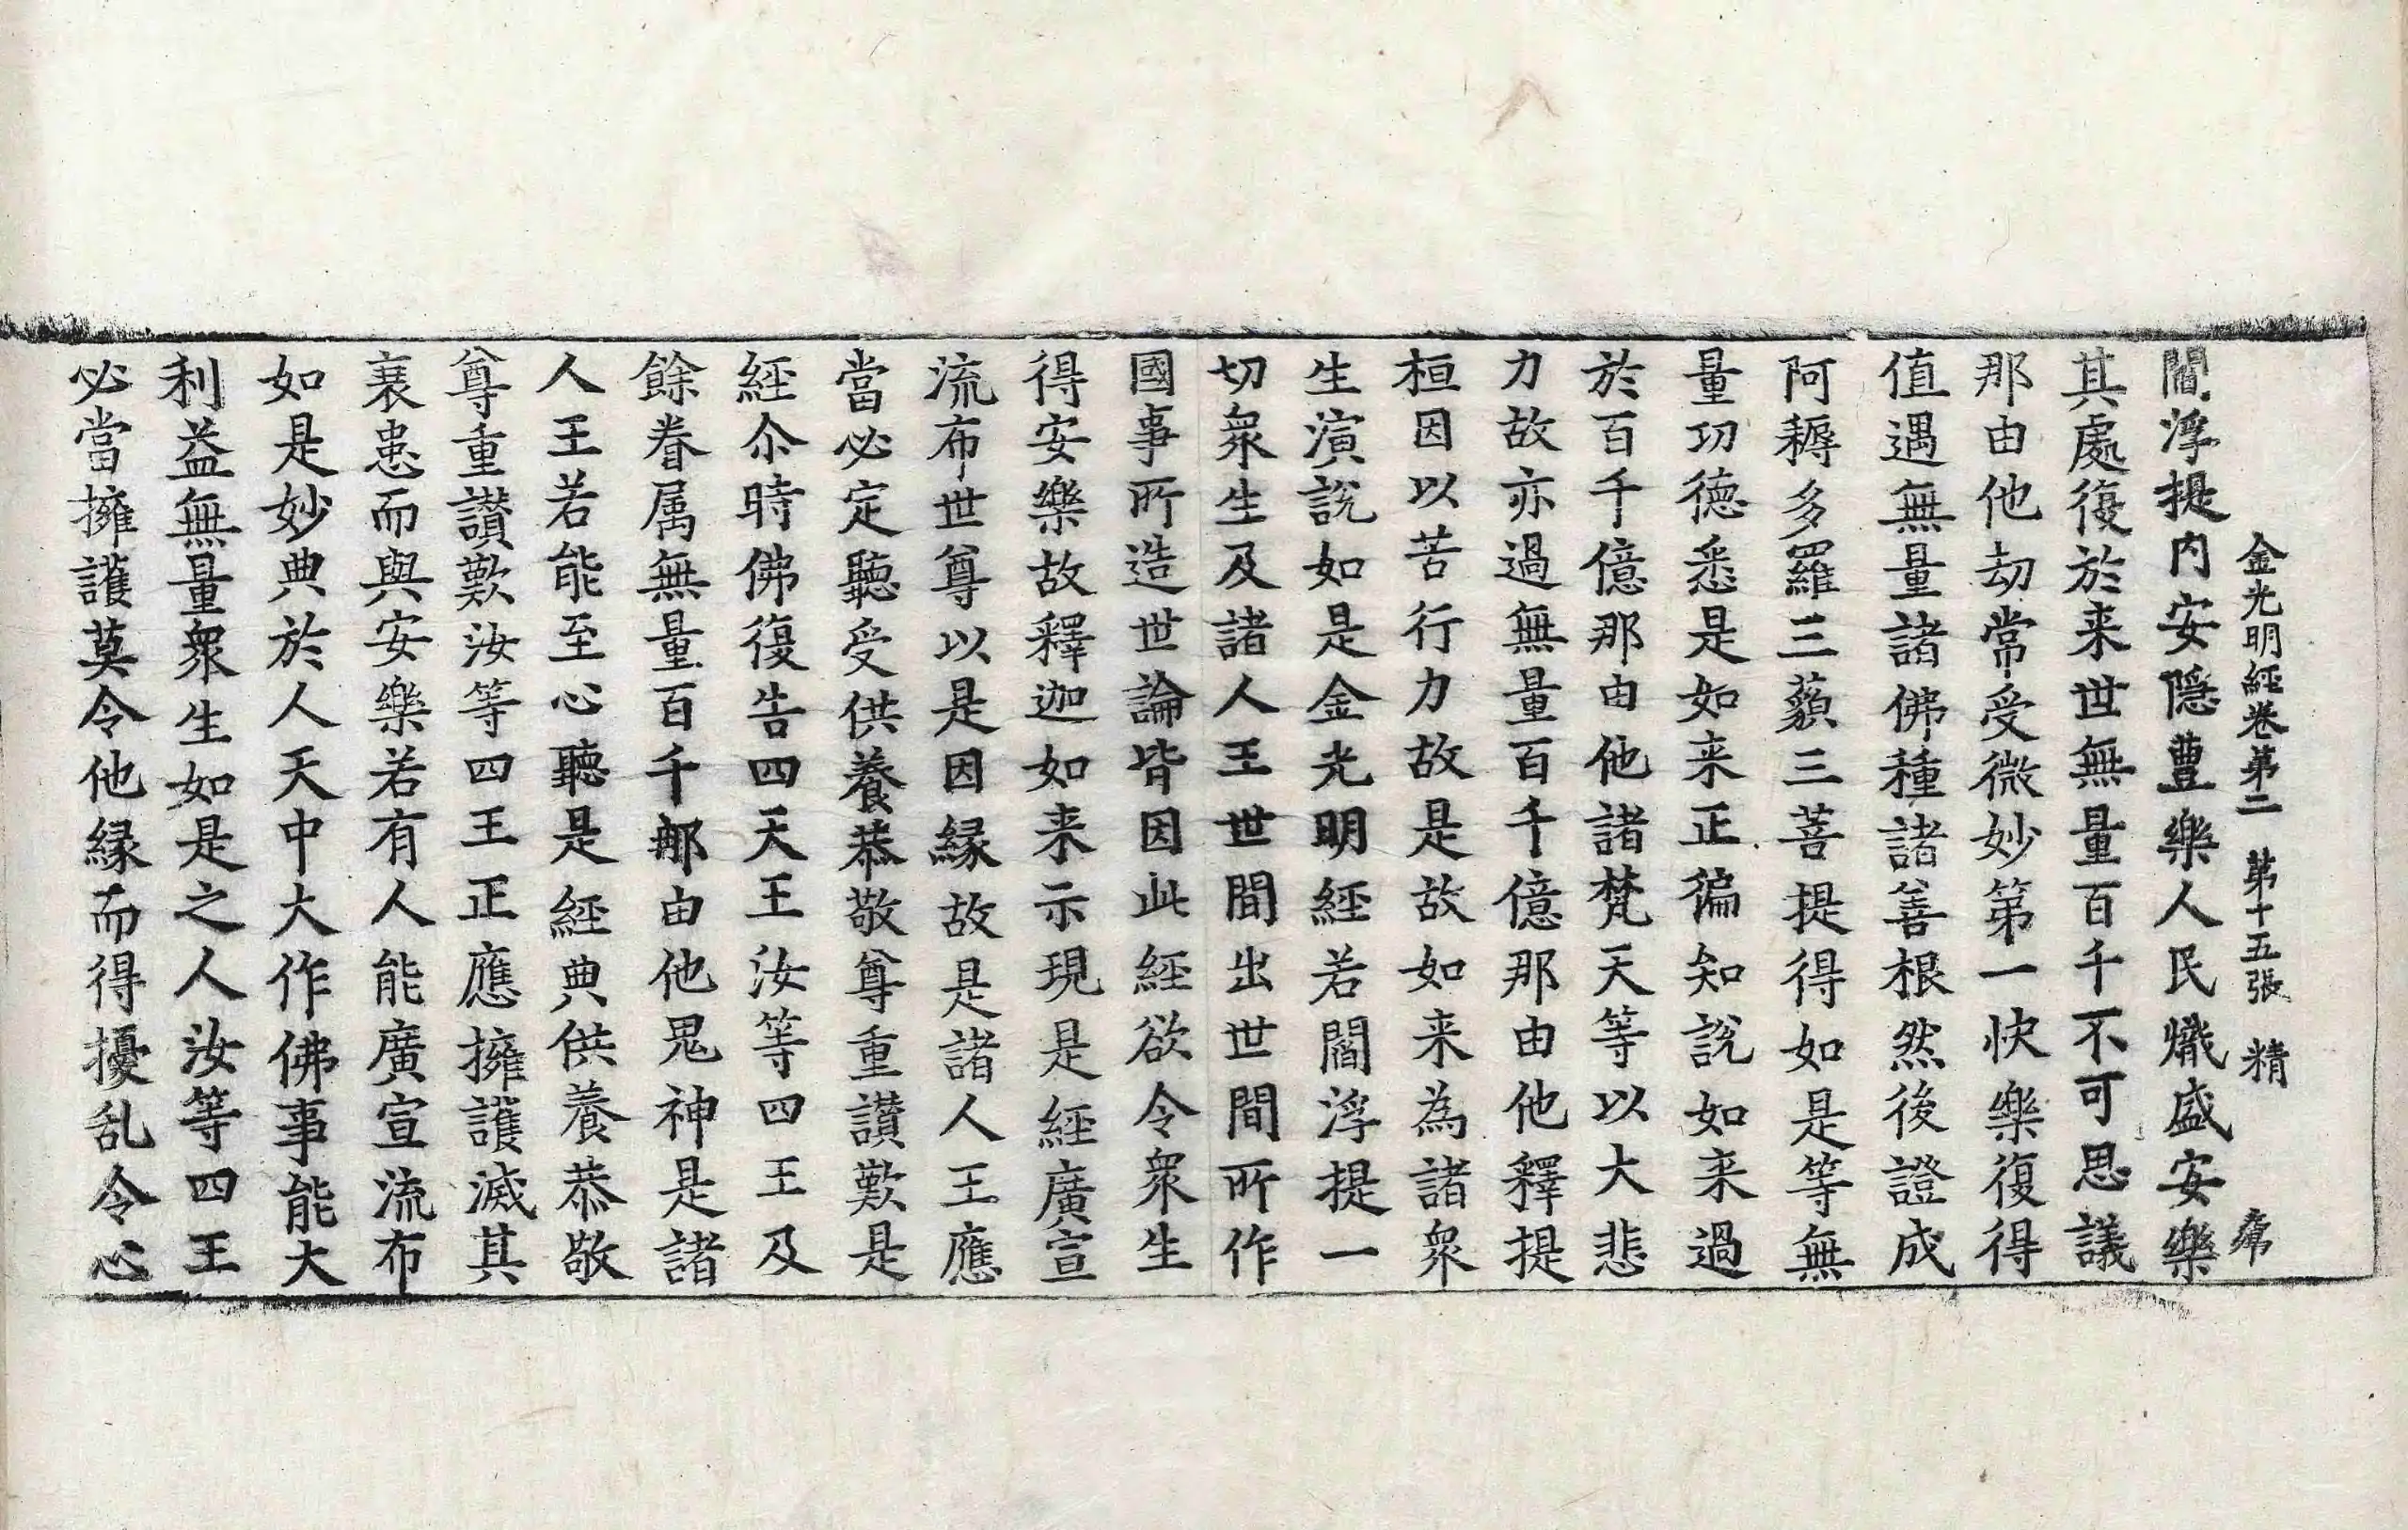 金光明經卷第二　第十五張　精
閻浮提内安隠豊樂人民熾盛安樂
其處復於来世無量百千不可思議
那由他劫常受微妙第一快樂復得
值遇無量諸佛種諸善根然後證成
阿耨多羅三藐三菩提得如是等無
量功德悉是如来正徧知說如来過
於百千億那由他諸梵天等以大悲
力故亦過無量百千億那由他釋提
桓因以苦行力故是故如来為諸衆
生演說如是金光明經若閻浮提一
切衆生及諸人王世間出世間所作
國事所造世論皆因此經欲令衆生
得安樂故釋迦如来示現是經廣宣
流布世尊以是因縁故是諸人王應
當必定聽受供養恭敬尊重讃歎是
經尒時佛復告四天王汝等四王及
餘眷属無量百千那由他鬼神是諸
人王若能至心聽是經典供養恭敬
尊重讃歎汝等四王正應擁護滅其
衰患而與安樂若有人能廣宣流布
如是妙典於人天中大作佛事能大
利益無量衆生如是之人汝等四王
必當擁護莫令他縁而得擾乱令心